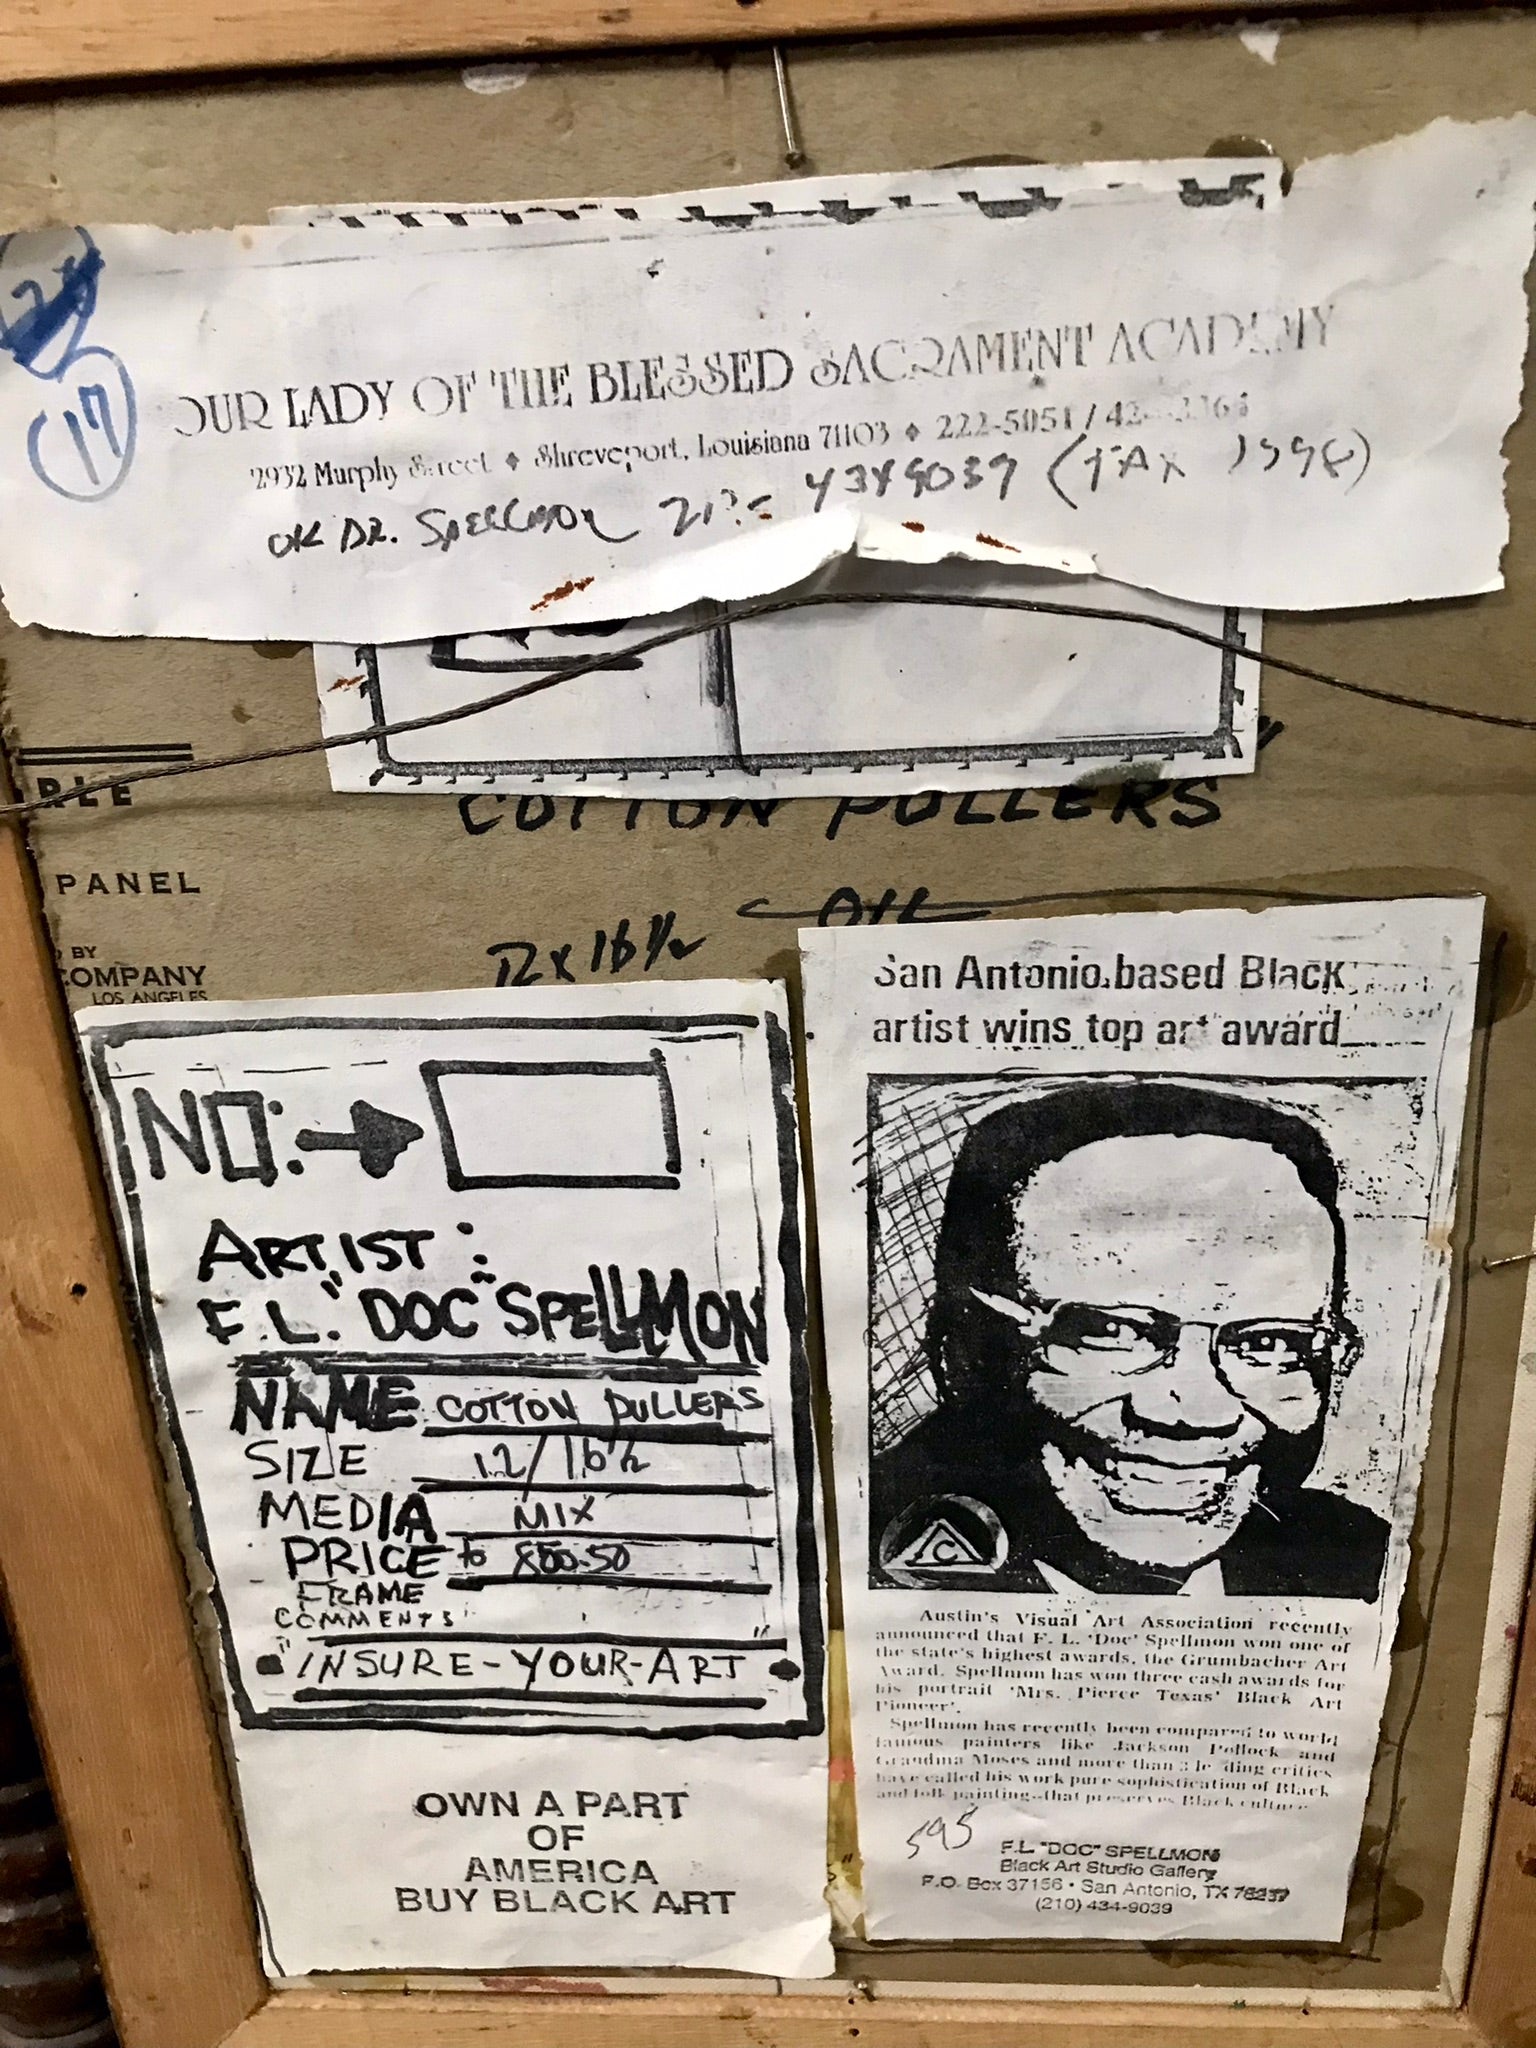 17
OUR LADY OF THE BLESSED SACRAMENT ACADEMY
2932 Murphy Street ◆ Shreveport, Louisiana 71103 ◆ 222-5051 /
OK DR. SPELLMON 4349039 (FAX 1998)
RLE
COTTON PULLERS
PANEL
OIL
12 x 16 1/2
BY
COMPANY
LOS ANGELES
NO:
ARTIST:
F.L. "DOC" SPELLMON
NAME COTTON PULLERS
SIZE 12/16 1/2
MEDIA MIX
PRICE to 850.50
FRAME
COMMENTS
"INSURE-YOUR-ART"
OWN A PART
OF
AMERICA
BUY BLACK ART
San Antonio-based Black
artist wins top art award
C
Austin's Visual Art Association recently
announced that F. L. 'Doc' Spellmon won one of
the state's highest awards, the Grumbacher Art
Award. Spellmon has won three cash awards for
his portrait 'Mrs. Pierce Texas' Black Art
Pioneer'.
Spellmon has recently been compared to world
famous painters like Jackson Pollock and
Grandma Moses and more than 3 leading critics
have called his work pure sophistication of Black
and folk painting--that preserves Black culture
595
F.L. "DOC" SPELLMON
Black Art Studio Gallery
P.O. Box 37156 • San Antonio, TX 78237
(210) 434-9039